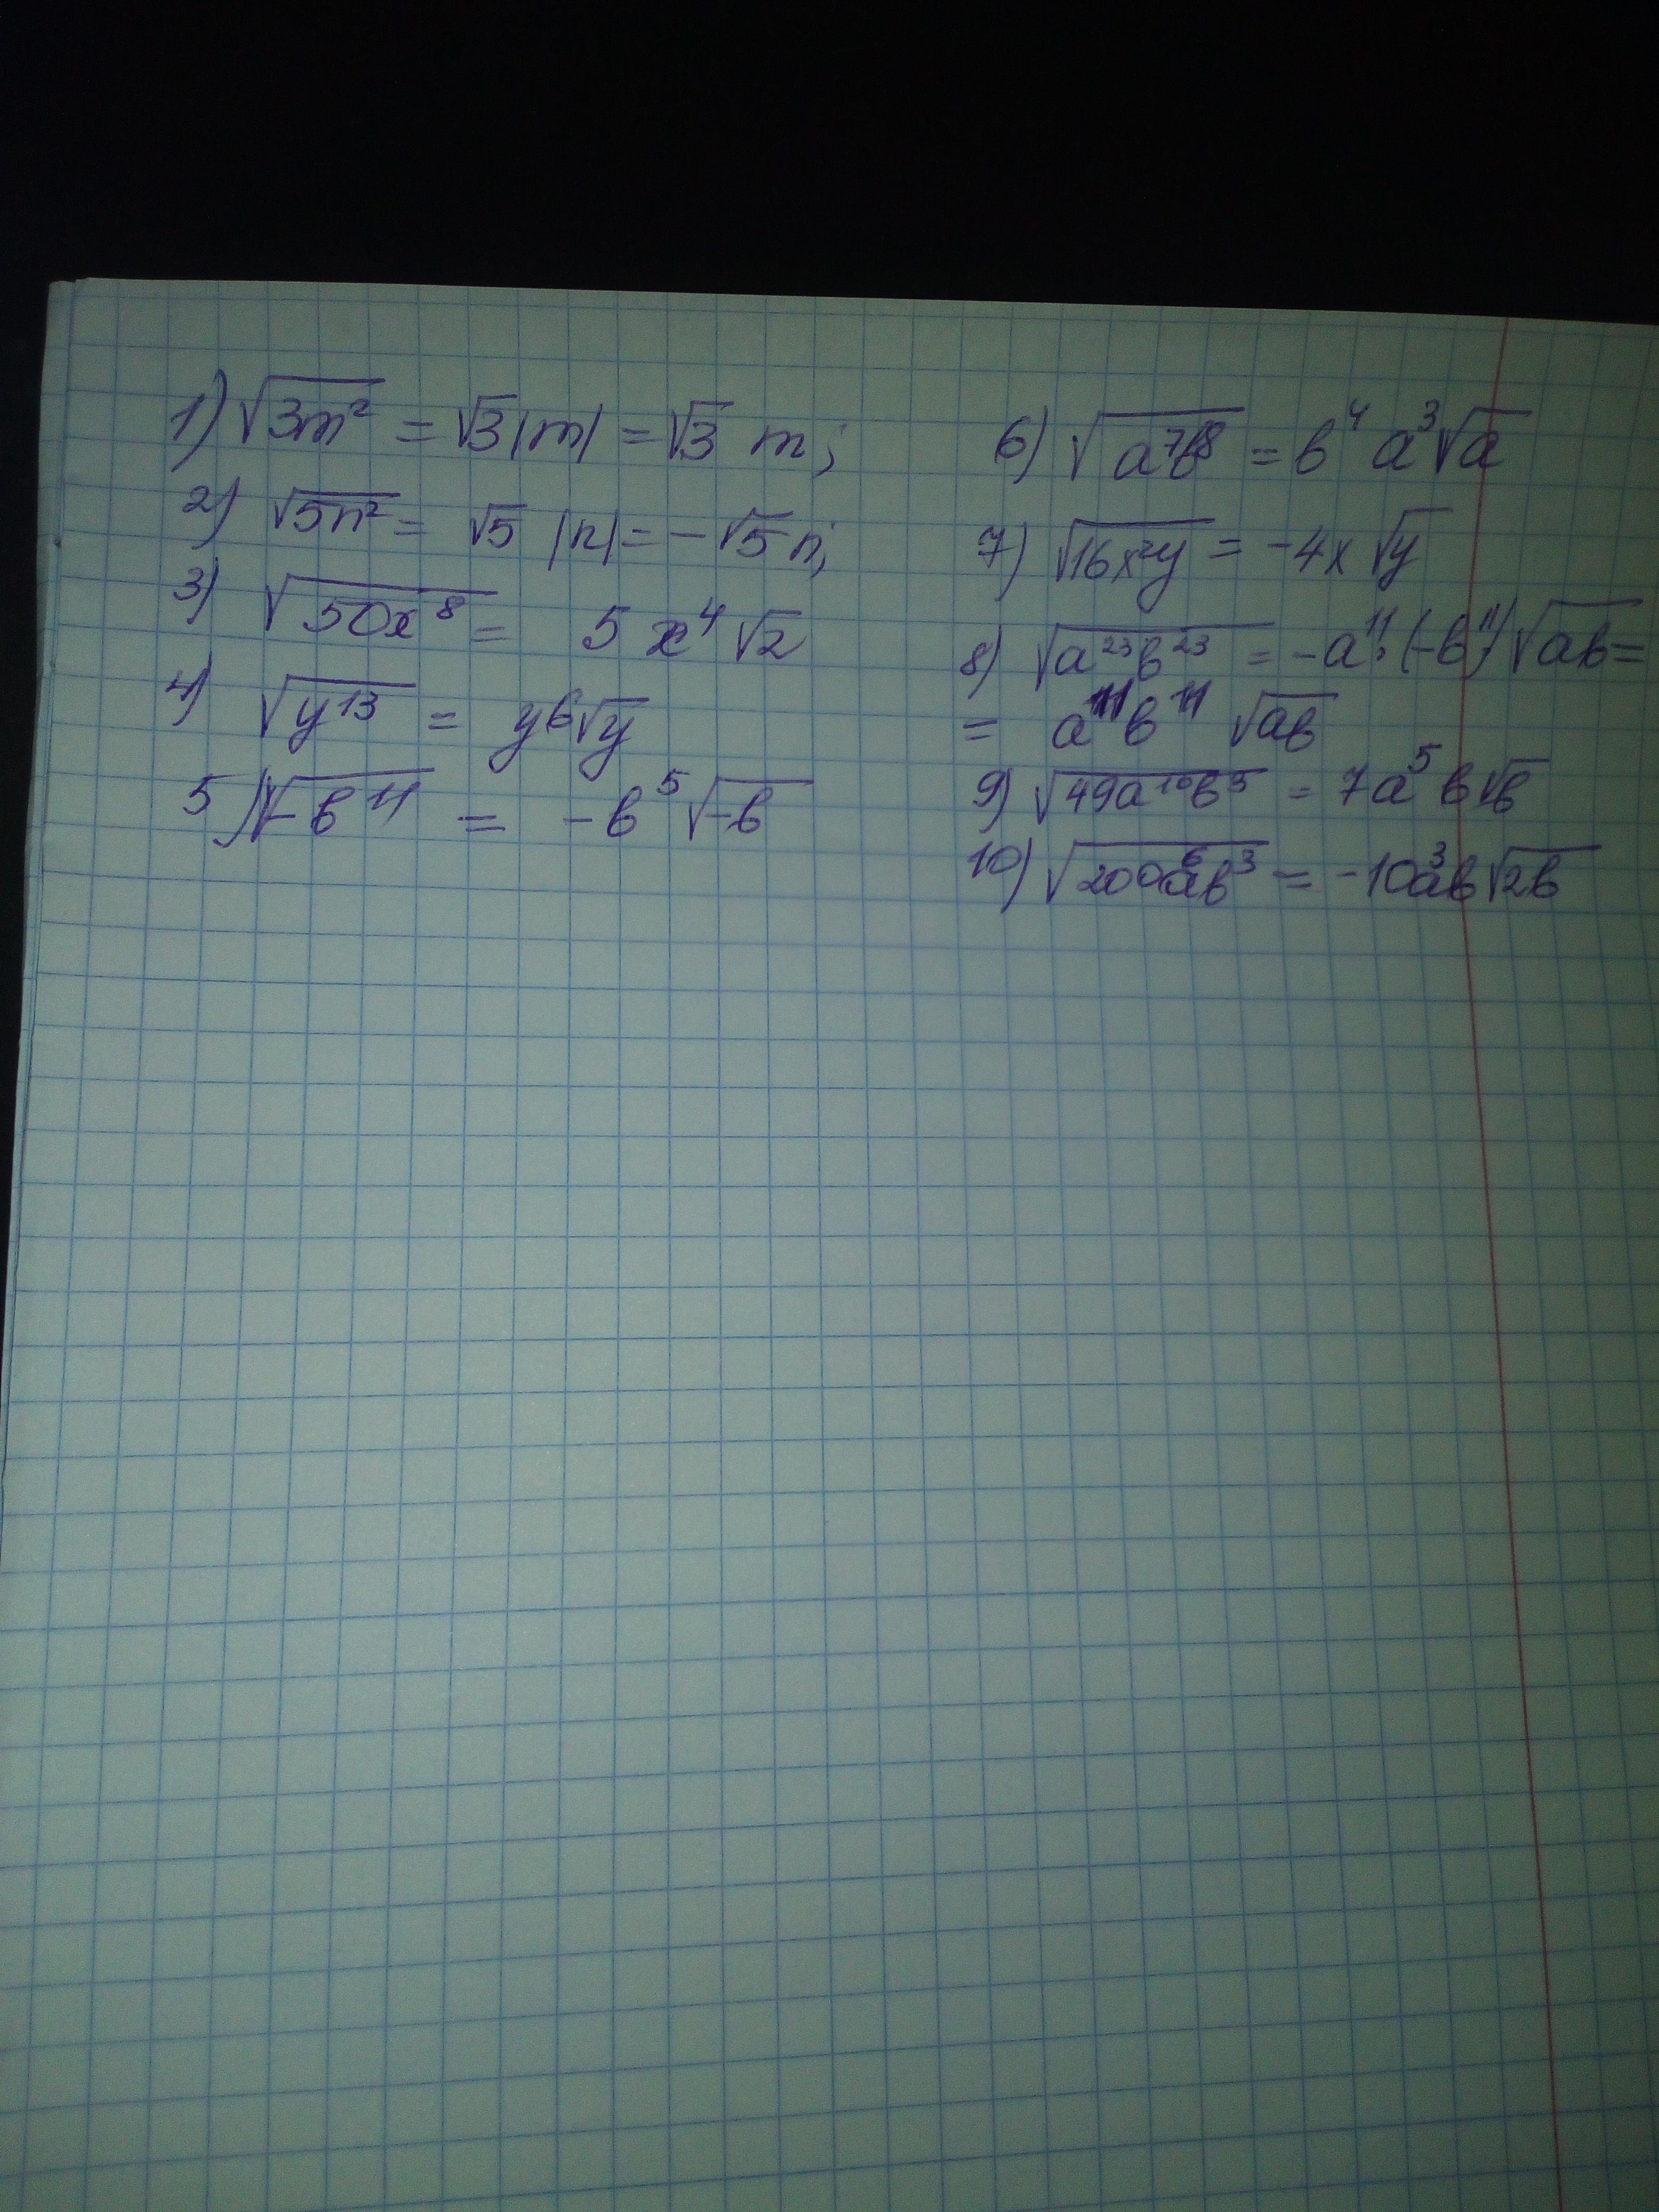 1) √3m² = √3|m| = √3 m;
2) √5n² = √5 |n| = -√5 n;
3) √50x⁸ = 5x⁴√2
4) √y¹³ = y⁶√y
5) √-в¹¹ = -в⁵√-в
6) √a⁷в⁸ = в⁴a³√a
7) √16x²y = -4x√y
8) √a²³в²³ = -a¹¹·(-в¹¹)√aв =
= a¹¹в¹¹ √aв
9) √49a¹⁰в³ = 7a⁵в√в
10) √200a⁶в³ = -10a³в√2в